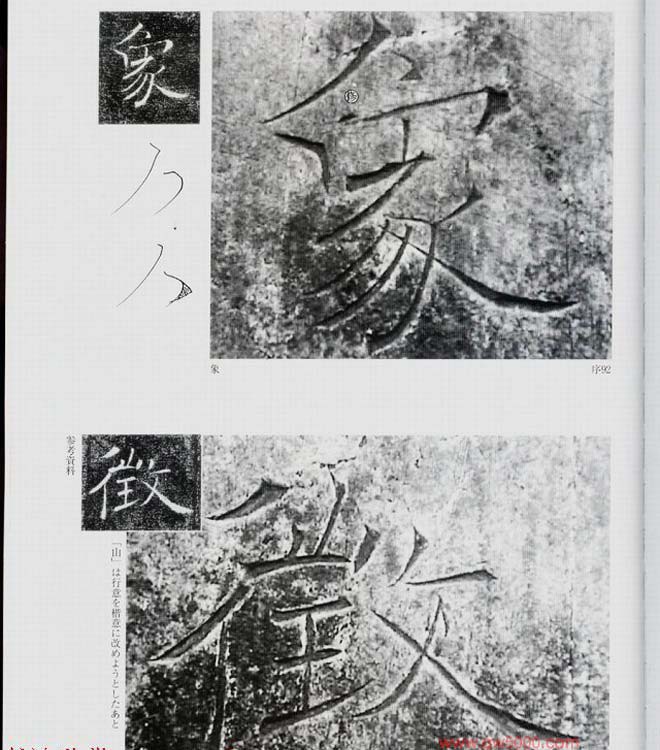 象
象
象
序92
参考資料
徴
徴
「山」は行意を楷意に改めようとしたあと